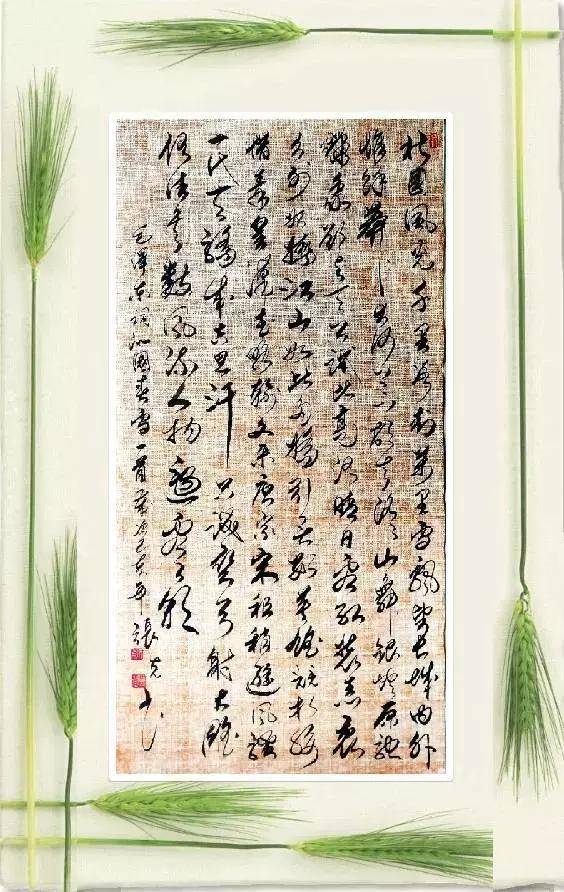 北国風光千里冰封萬里雪飄望長城内外
惟餘莽莽大河上下頓失滔滔山舞銀蛇原馳
蠟象欲与天公試比高須晴日看紅裝素裹
分外妖嬈江山如此多嬌引无數英雄競折腰
惜秦皇漢武略輸文采唐宗宋祖稍遜風騷
一代天驕成吉思汗只識彎弓射大雕
俱往矣數風流人物還看今朝
毛澤东詞沁園春雪一首 己亥年 張